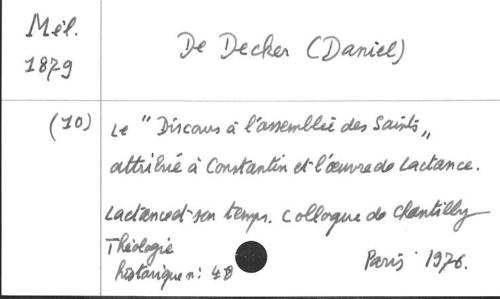 Mél.
1879
De Decker (Daniel)
(10)
Le "Discours à l'assemblée des Saints„
attribué à Constantin et l'œuvre de Lactance.
Lactance et son temps. Colloque de Chantilly
Théologie
historique n: 48
Paris 1976.